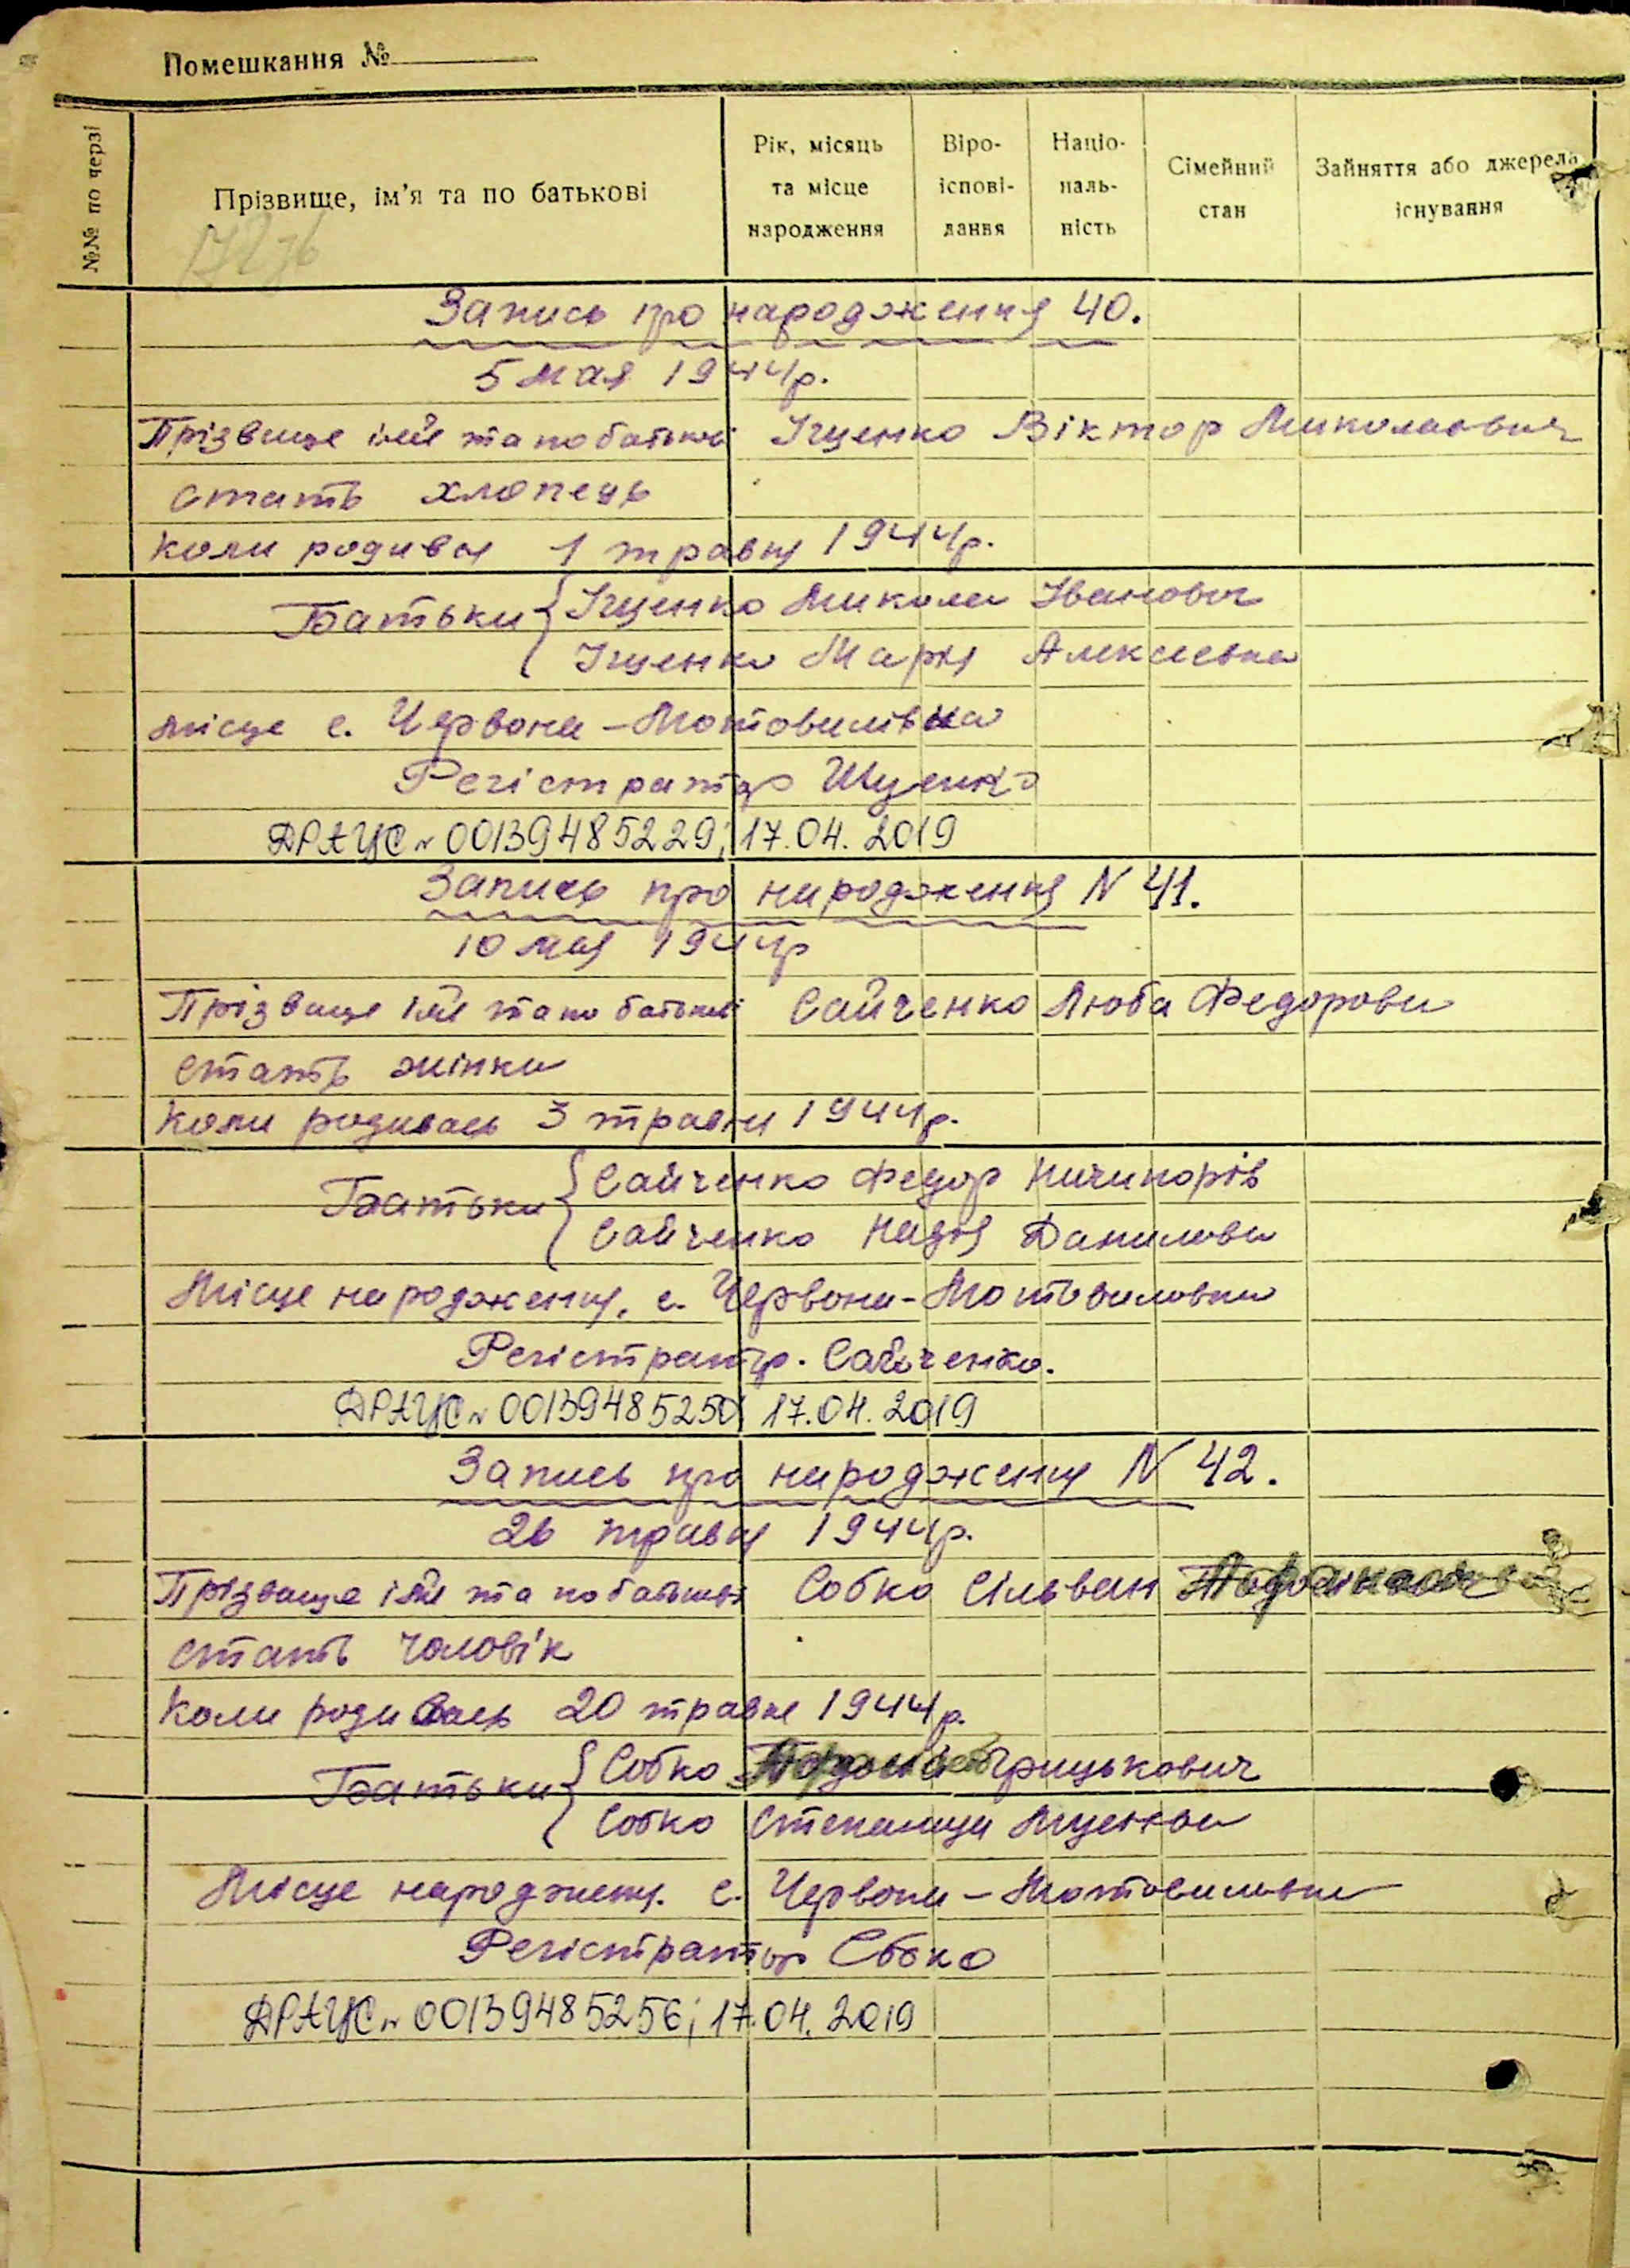 Помешкання №
№№ по черзі
Прізвище, ім'я та по батькові
Рік, місяць та місце народження
Віро-іспові-дання
Націо-наль-ність
Сімейний стан
Зайняття або джерела існування
Запись про народження 40.
5 мая 1944р.
Прізвище імя та по батькові Іщенко Віктор Миколаович
стать хлопець
коли родився 1 травня 1944р.
Батьки Іщенко Микола Іванович
Іщенко Марія Алексеевна
місце с. Червона-Мотовилівка
Регістратор Іщенко
ДРАЦС № 00139485229; 17.04.2019
Запись про народження N 41.
10 мая 1944р
Прізвище імя та по батькові Сайченко Люба Федорова
стать жінка
Коли родилась 3 травня 1944р.
Батьки Сайченко Федор Ничипорів
Сайченко Надя Данилова
Місце народження. с. Червона-Мотовиловка
Регістратор. Сайченко.
ДРАЦС № 00139485250 17.04.2019
Запись про народження N 42.
26 травня 1944р.
Прізвище імя та по батькові Собко Сільван
стать чоловік
Коли родилась 20 травня 1944р.
Батьки Собко Грицькович
Собко
Місце народження. с. Червона-Мотовиловка
Регістратор Собко
ДРАЦС № 00139485256; 17.04.2019